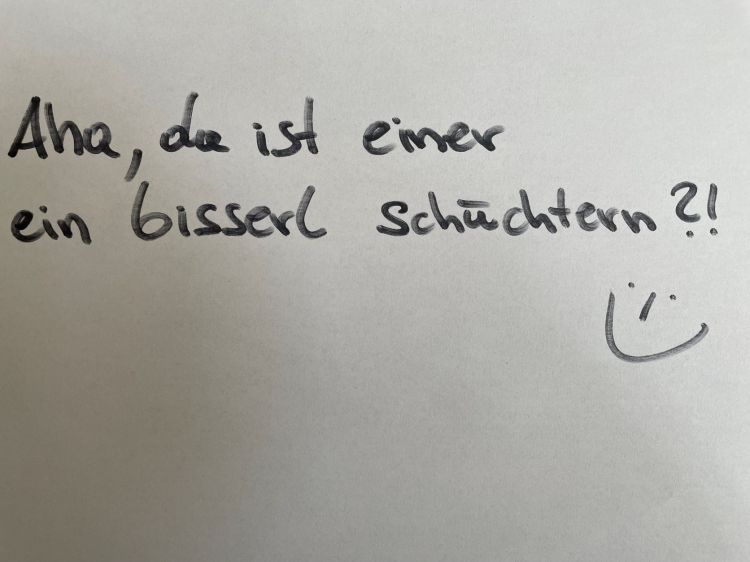 Aha, da ist einer
ein bisserl schüchtern?!